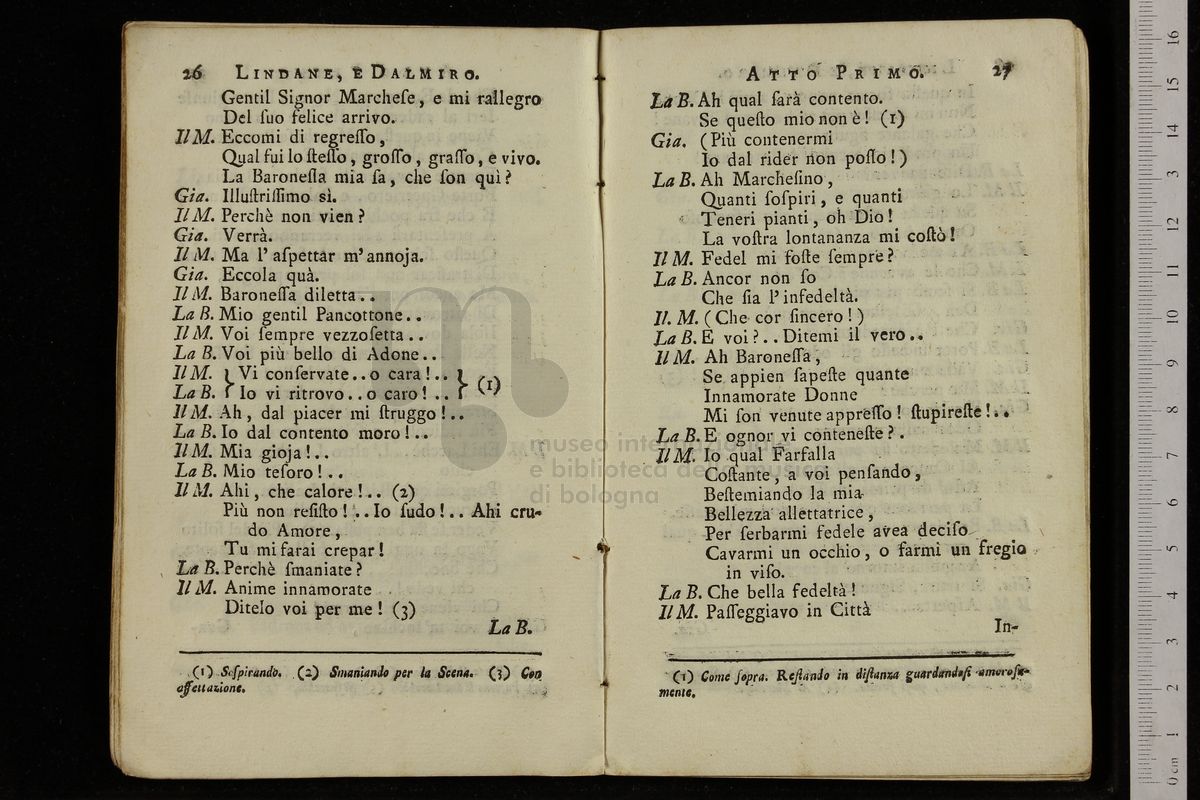 26 LINDANE, E DALMIRO.
Gentil Signor Marcheſe, e mi rallegro
Del ſuo felice arrivo.
Il M. Eccomi di regreſſo,
Qual fui lo ſteſſo, groſſo, graſſo, e vivo.
La Baroneſſa mia ſa, che ſon quì?
Gia. Illuſtriſſimo sì.
Il M. Perchè non vien?
Gia. Verrà.
Il M. Ma l' aſpettar m' annoja.
Gia. Eccola quà.
Il M. Baroneſſa diletta..
La B. Mio gentil Pancottone..
Il M. Voi ſempre vezzoſetta..
La B. Voi più bello di Adone..
Il M. } Vi conſervate..o cara!.. } (1)
La B. } Io vi ritrovo..o caro!.. }
Il M. Ah, dal piacer mi ſtruggo!..
La B. Io dal contento moro!..
Il M. Mia gioja!..
La B. Mio teſoro!..
Il M. Ahi, che calore!.. (2)
Più non reſiſto!..Io ſudo!.. Ahi cru-
do Amore,
Tu mi farai crepar!
La B. Perchè ſmaniate?
Il M. Anime innamorate
Ditelo voi per me! (3)
La B.
(1) Soſpirando. (2) Smaniando per la Scena. (3) Con
affettazione.
ATTO PRIMO. 27
La B. Ah qual ſarà contento.
Se queſto mio non è! (1)
Gia. (Più contenermi
Io dal rider non poſſo!)
La B. Ah Marcheſino,
Quanti ſoſpiri, e quanti
Teneri pianti, oh Dio!
La voſtra lontananza mi coſtò!
Il M. Fedel mi foſte ſempre?
La B. Ancor non ſo
Che ſia l' infedeltà.
Il. M. (Che cor ſincero!)
La B. E voi?..Ditemi il vero..
Il M. Ah Baroneſſa,
Se appien ſapeſte quante
Innamorate Donne
Mi ſon venute appreſſo! ſtupireſte!..
La B. E ognor vi conteneſte?.
Il M. Io qual Farfalla
Coſtante, a voi penſando,
Beſtemiando la mia
Bellezza allettatrice,
Per ſerbarmi fedele avea deciſo
Cavarmi un occhio, o farmi un fregio
in viſo.
La B. Che bella fedeltà!
Il M. Paſſeggiavo in Città
In-
(1) Come ſopra. Reſtando in diſtanza guardandoſi amoroſa-
mente.
museo internazionale
e biblioteca della musica
di bologna
0 cm 1 2 3 4 5 6 7 8 9 10 11 12 13 14 15 16